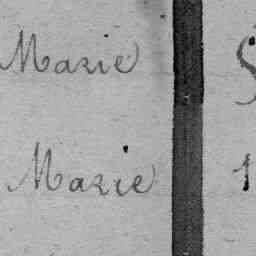 Marie
Marie